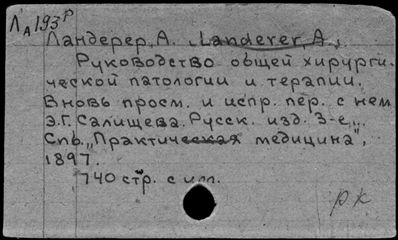 Л А 193 Р
Ландерер, А. (Landerer, A.)
Руководство общей хирурги-
ческой патологии и терапии.
Вновь просм. и испр. пер. с нем.
Э.Г. Салищева. Русск. изд. 3-е.,
Спб., "Практическая медицина",
1897.
740 стр. с илл.
рк